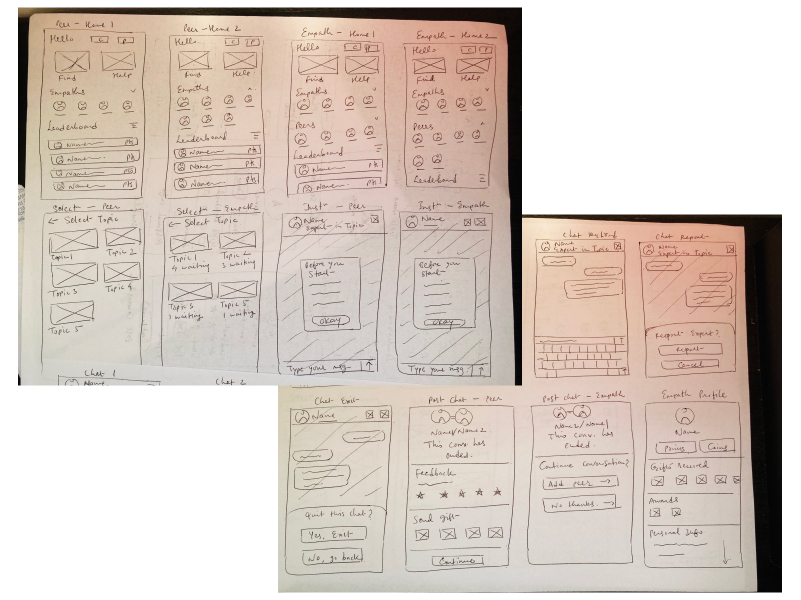 Peer - Home 1
Hello C P
Find Help
Empaths
Leaderboard
Name Pts
Name Pts
Name Pts
Name Pts
Peer - Home 2
Hello C P
Find Help
Empaths
Leaderboard
Name Pts
Name Pts
Name Pts
Empath - Home 1
Hello C P
Find Help
Empaths
Peers
Leaderboard
Name Pts
Name Pts
Empath - Home 2
Hello C P
Find Help
Empaths
Peers
Leaderboard
Select - Peer
← Select Topic
Topic 1 Topic 2
Topic 3 Topic 4
Topic 5
Select - Empath
← Select Topic
Topic 1 Topic 2
4 waiting 3 waiting
Topic 3 Topic 5
1 waiting 1 waiting
Inst - Peer
Name
Expert in Topic
Before you
Start -
Okay
Type your msg. ↑
Inst - Empath
Name
Before you
Start -
Okay
Type your msg. ↑
Chat 1
Name
Chat 2
Name
Expert in Topic
Chat Report
Name
Expert in Topic
Report Expert?
Report
Cancel
Chat Exit
Name
Quit this chat?
Yes, Exit
No, go back
Post chat - Peer
Name1/Name2
This Conv. has
ended.
Feedback
Send gift
Continue
Post chat - Empath
Name2/Name1
This Conv. has
ended.
Continue conversation?
Add peer →
No thanks. →
Empath Profile
Name
Points Coins
Gifts received
Awards
Personal Info